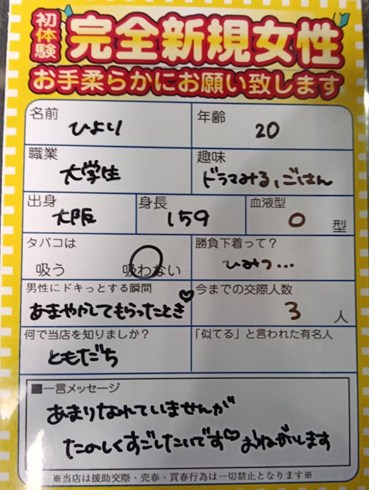 初体験 完全新規女性
お手柔らかにお願い致します
名前 ひより 年齢 20
職業 大学生 趣味 ドラマみる、ごはん
出身 大阪 身長 159 血液型 O 型
タバコは 吸う 吸わない 勝負下着って? ひみつ…
男性にドキっとする瞬間 あまやかしてもらったとき♡ 今までの交際人数 3 人
何で当店を知りましたか? ともだち 「似てる」と言われた有名人
■一言メッセージ
あまりなれていませんが
たのしくすごしたいです♡おねがいします
※当店は援助交際・売春・買春行為は一切禁止となります※